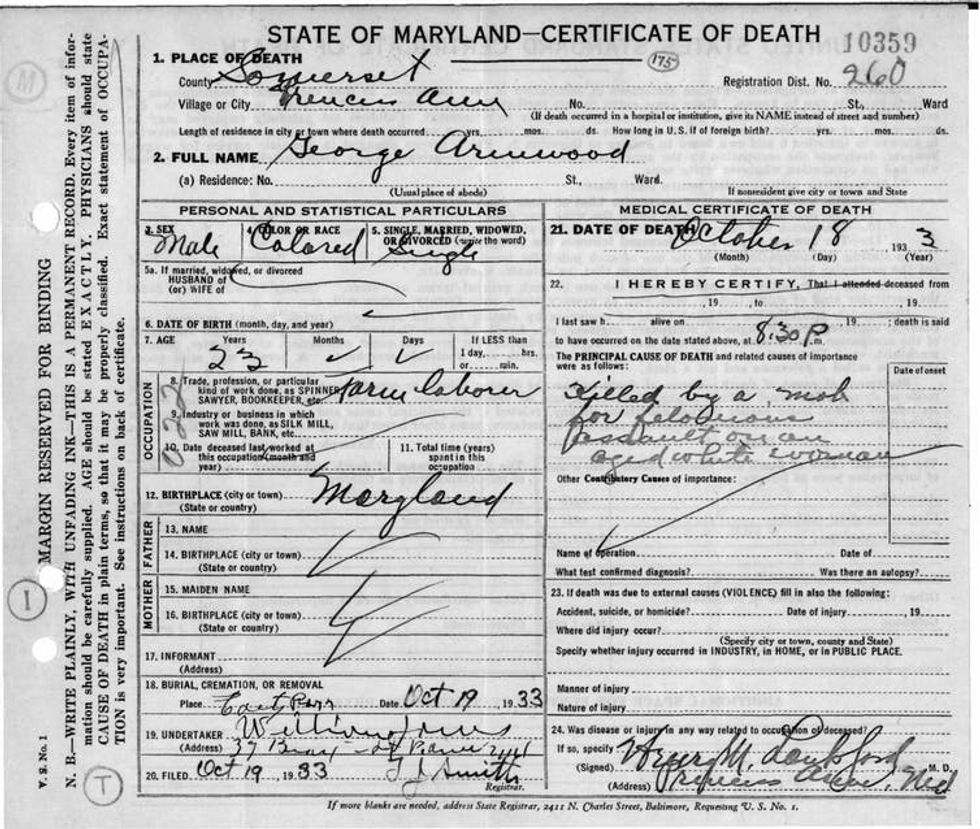 STATE OF MARYLAND—CERTIFICATE OF DEATH
10359
1. PLACE OF DEATH
175
County Somerset
Registration Dist. No. 260
Village or City Princess Ann No. St., Ward
(If death occurred in a hospital or institution, give its NAME instead of street and number)
Length of residence in city or town where death occurred yrs. mos. ds. How long in U. S. if of foreign birth? yrs. mos. ds.
2. FULL NAME George Armwood
(a) Residence: No. St., Ward.
(Usual place of abode) If nonresident give city or town and State
PERSONAL AND STATISTICAL PARTICULARS
3. SEX Male
4. COLOR OR RACE Colored
5. SINGLE, MARRIED, WIDOWED, OR DIVORCED (write the word) Single
5a. If married, widowed, or divorced
HUSBAND of
(or) WIFE of
6. DATE OF BIRTH (month, day, and year)
7. AGE Years Months Days If LESS than
23 1 day hrs.
or min.
OCCUPATION
8. Trade, profession, or particular
kind of work done, as SPINNER,
SAWYER, BOOKKEEPER, etc. Farm laborer
9. Industry or business in which
work was done, as SILK MILL,
SAW MILL, BANK, etc.
10. Date deceased last worked at
this occupation (month and
year)
11. Total time (years)
spent in this
occupation
12. BIRTHPLACE (city or town) Maryland
(State or country)
FATHER
13. NAME
14. BIRTHPLACE (city or town)
(State or country)
MOTHER
15. MAIDEN NAME
16. BIRTHPLACE (city or town)
(State or country)
17. INFORMANT
(Address)
18. BURIAL, CREMATION, OR REMOVAL
Place Date Oct 19, 1933
19. UNDERTAKER William
(Address)
20. FILED Oct 19, 1933 T J Smith
Registrar.
MEDICAL CERTIFICATE OF DEATH
21. DATE OF DEATH October 18 1933
(Month) (Day) (Year)
22. I HEREBY CERTIFY, That I attended deceased from
, 19 , to , 19
I last saw h alive on , 19 ; death is said
to have occurred on the date stated above, at 8:30 P. m.
The PRINCIPAL CAUSE OF DEATH and related causes of importance
were as follows:
Date of onset
Killed by a mob
for felonious
assault on an
aged white woman
Other Contributory Causes of importance:
Name of operation Date of
What test confirmed diagnosis? Was there an autopsy?
23. If death was due to external causes (VIOLENCE) fill in also the following:
Accident, suicide, or homicide? Date of injury , 19
Where did injury occur?
(Specify city or town, county and State)
Specify whether injury occurred in INDUSTRY, in HOME, or in PUBLIC PLACE.
Manner of injury
Nature of injury
24. Was disease or injury in any way related to occupation of deceased?
If so, specify
(Signed) Henry M. Lankford M. D.
(Address) Princess Anne, Md
If more blanks are needed, address State Registrar, 2411 N. Charles Street, Baltimore, Requesting V. S. No. 1.
V. S. No. 1
MARGIN RESERVED FOR BINDING
N. B.—WRITE PLAINLY, WITH UNFADING INK—THIS IS A PERMANENT RECORD. Every item of infor-
mation should be carefully supplied. AGE should be stated EXACTLY. PHYSICIANS should state
CAUSE OF DEATH in plain terms, so that it may be properly classified. Exact statement of OCCUPA-
TION is very important. See instructions on back of certificate.
M
I
T